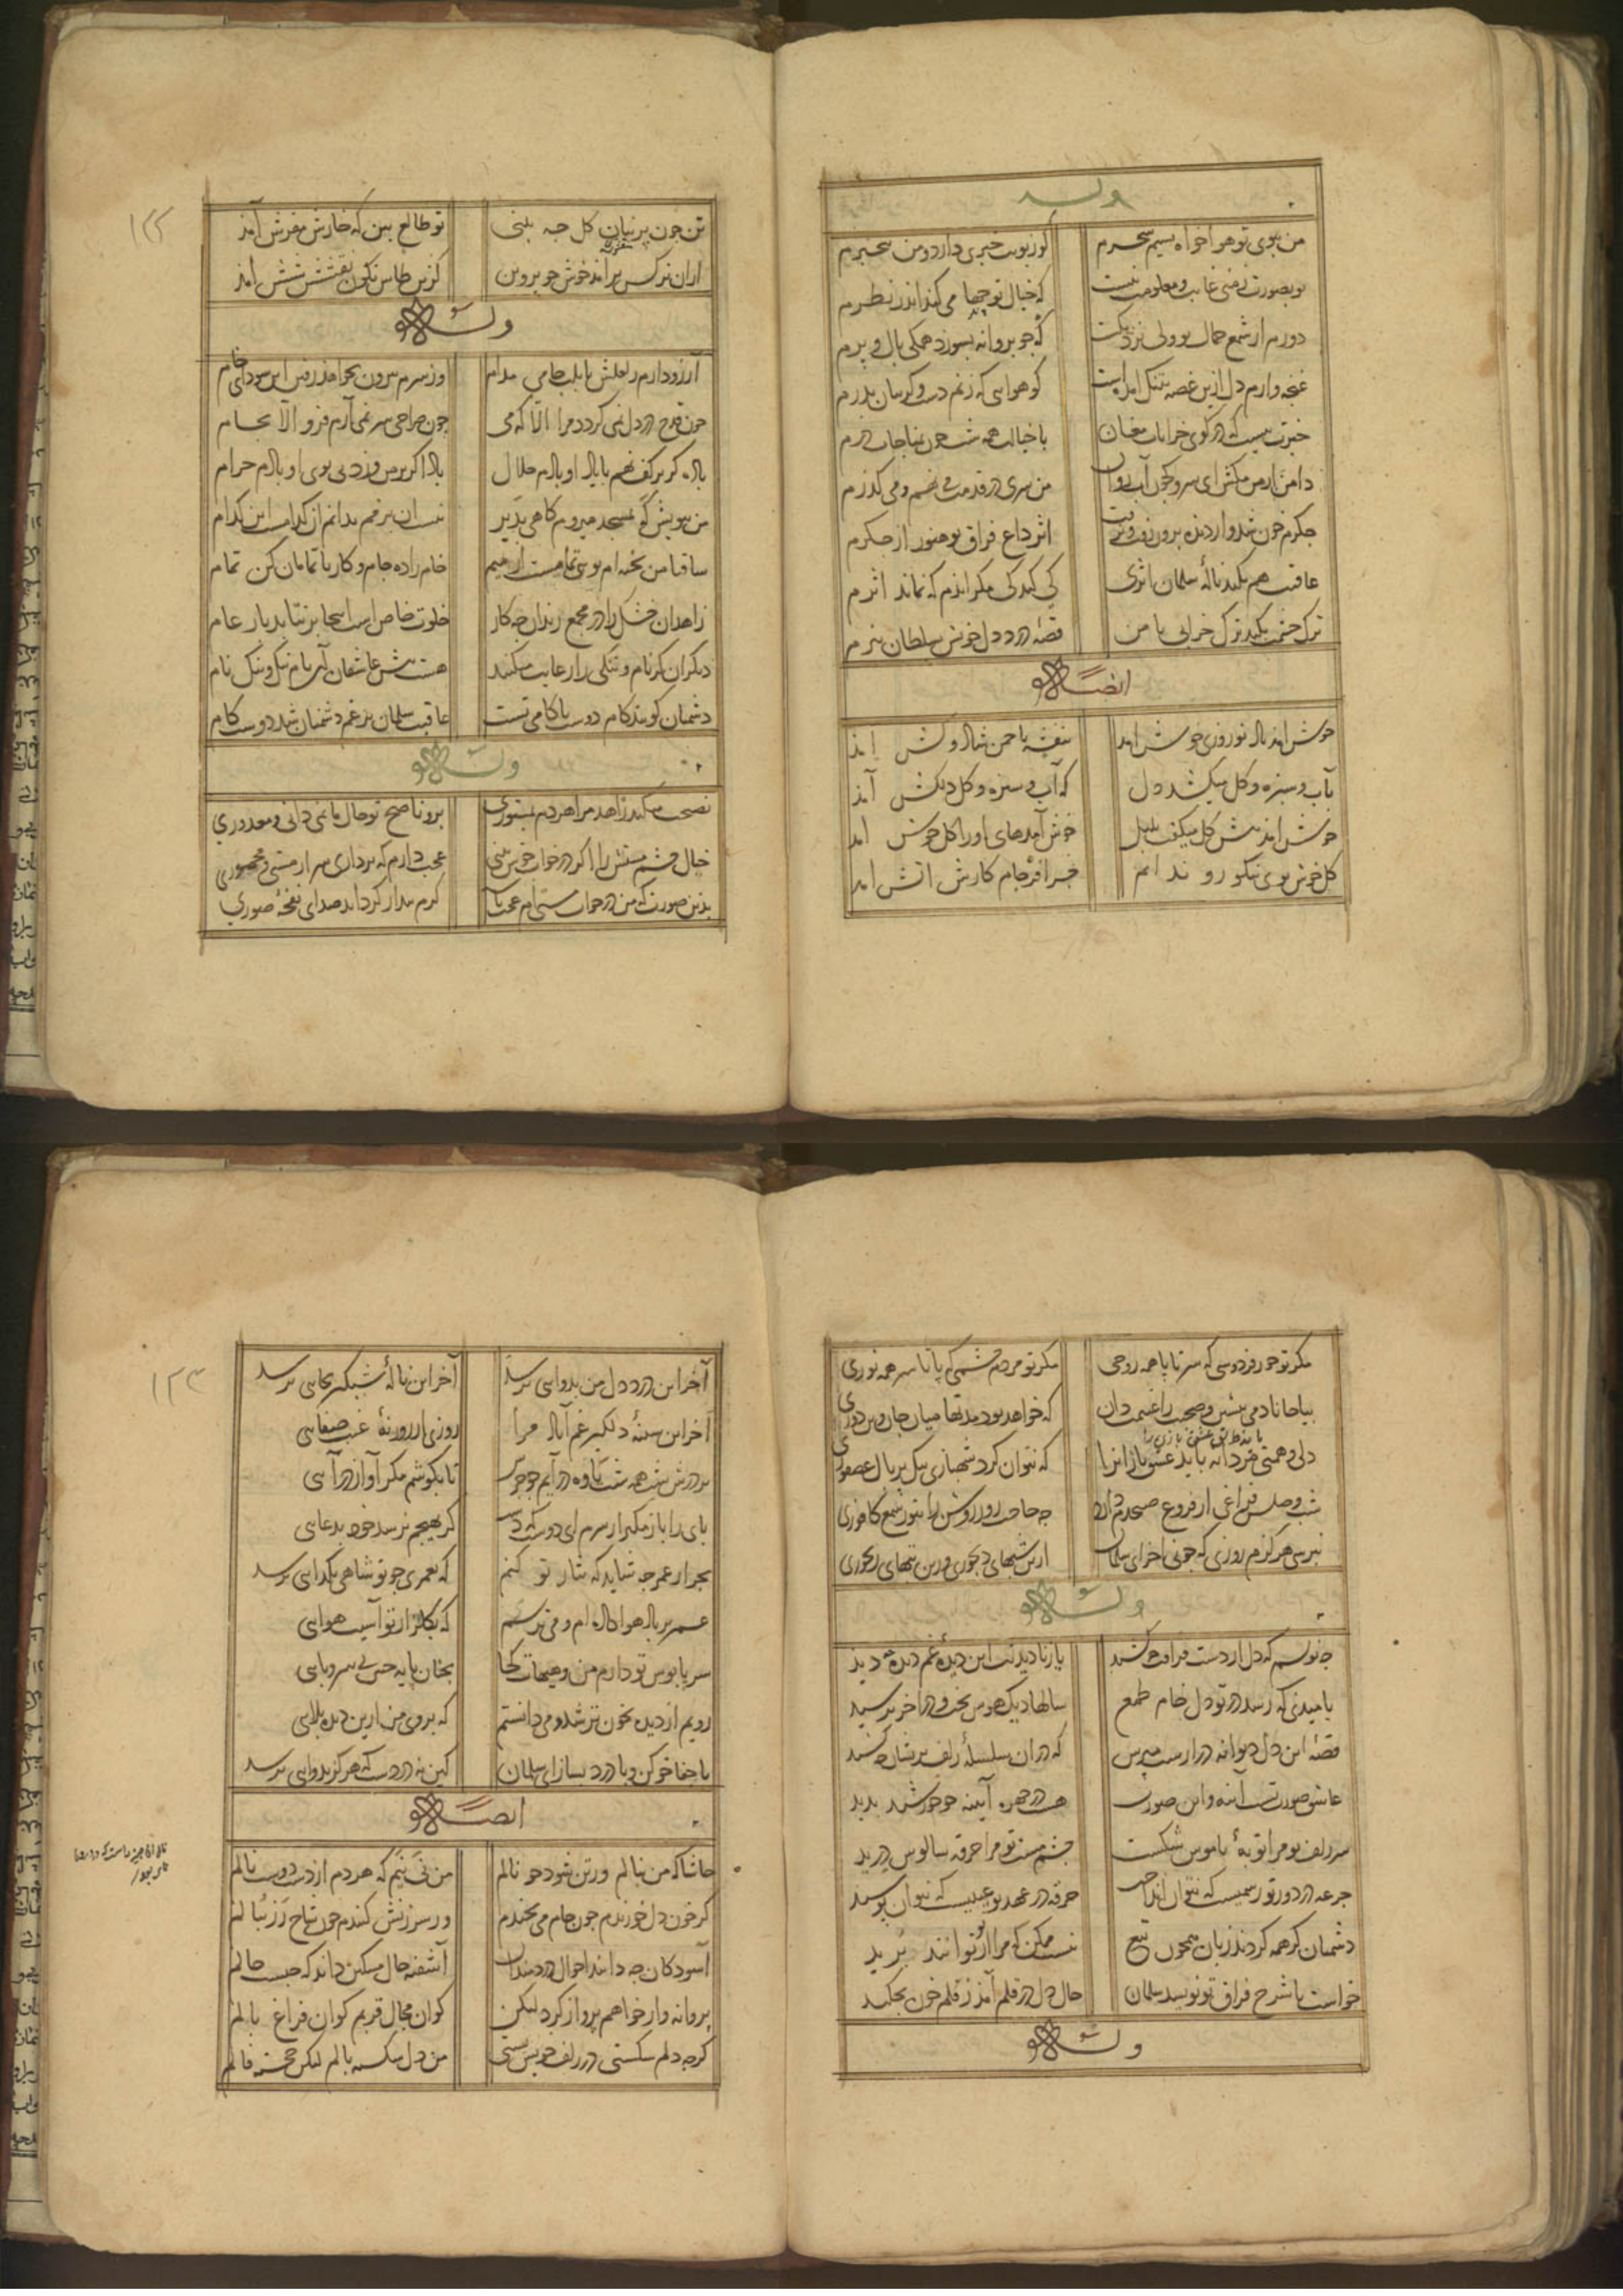 وله
من ببوی تو هواخواه نسیم سحرم
کو ز بویت خبری دارد و من بیخبرم
تو بصورت ز منی غایب و معلومت نیست
که خیال تو چها می کند اندر نظرم
دورم از شمع جمال تو ولی نزدیکست
که چو پروانه بسوزد همکی بال و پرم
غنجه وارم دل ازین غصه بتنک آمدست
کو هوایی که زنم دست و کریبان بدرم
خبرت نیست که در کوی خرابات مغان
با خیالت همه شب جون بمناجات درم
دامن از من مکش ای سرو که جون آب روان
من سری در قدمت می نهم و می کذرم
جکرم خون شد و از دیده برون رفت و نرفت
اثر داغ فراق تو هنوز از جکرم
عاقبت هم بکند نالهٔ سلمان اثری
کی کند کی مکر اندم که نماند اثرم
ترک چشمت بکند ترک خرابی با من
قصهٔ درد دل خویش بسلطان ببرم
ایضاً
خوش امد باد نوروزی خوش امد
بنفشه با جمن شاد و کش امد
بآب و سبزه و کل میکشد دل
که آب و سبزه و کل دلکش آمد
خوش امد بیش کل میکفت بلبل
خوش آمدهای او را کل خوش امد
کل خوش بوی نیکو رو ندانم
جرا فرجام کارش اتش امد
۱۲۲
تن جون پرنیان کل جه بینی
تو طالع بین که خارش مفرش آمد
ازان نرکس برآمد خوش جو پروین
کزین طاس نکون نقشش شش آمد
وله
آرزو دارم ز لعلش تا بلب جامی مدام
وز سرم بیرون نخواهد رفتن این سودای خام
جون قدح در دل نمی کردد مرا الا که می
جون صراحی سر نمی آرم فرو الا بجام
باده کر بر کف نهم با یاد او بادم حلال
باد اکر بر من وزد بی بوی او بادم حرام
من بویش که بمسجد میروم کاهی بدیر
نیست ان برقم بدانم از کدامست این کدام
ساقیا من بخته ام بویی تمامست از میم
خام را ده جام و کار ناتمامان کن تمام
زاهدان خشک را در مجمع رندان چه کار
خلوت خاص است اینجا برنتابد بار عام
دیکران کر نام و ننکی را رعایت میکنند
هست پیش عاشقان آن نام ننک و ننک نام
دشمنان کویند کام دوست ناکامی تست
عاقبت سلمان برغم دشمنان شد دوست کام
وله
نصیحت میکند زاهد مرا هر دم بمستوری
برو ناصح تو حال ما نمی دانی و معذوری
خیال چشم مستش را اکر در خواب خوش بینی
عجب دارم که برداری سر از مستی و مخموری
بدین صورت که من در خواب مستی ام عجب باشد
کرم بیدار کرداند صدای نفخهٔ صوری
مکر تو حور فردوسی که سر تا پا همه روحی
مکر تو مردم چشمی که پا تا سر همه نوری
بیا جانا دمی بنشین و صحبت را غنیمت دان
که خواهد بود مدتها میان جان و تن دوری
دلی و همتی مردانه باید عشق بازان را
که نتوان کرد شهبازی بیک پر و بال عصفوری
شب وصلش فراغی از فروغ صبحدم دارد
جه حاجت روز روشن را بنور شمع کافوری
نبرسی هرکزم روزی که جونی اخر ای سلمان
ازین شبهای دیجوری و زین تبهای رنجوری
وله
جه نویسم که دل از دست فراقت جه کشید
یا ز نادیدنت این دیدهٔ غم دیده چه دید
بامیدی که رسد در تو دل خام طمع
سالها دیک هوس بخت و در اخر نرسید
قصهٔ این دل دیوانه درازست مپرس
که دران سلسلهٔ زلف پریشان جه کشید
عاشق صورت تست آینه و این صورت
هست در جهره آیینه جو خورشید بدید
سر زلف تو مرا توبهٔ ناموس شکست
جشم مست تو مرا خرقه سالوس درید
جرعه در دور تو رسمیست که نتوان انداخت
خرقه در عهد تو عیبیست که نتوان پوشید
دشمنان کر همه کردند زبان همجون تیغ
نیست ممکن که مرا از تو توانند برید
خواست تا شرح فراق تو نویسد سلمان
حال دل در قلم آمد ز قلم خون بجکید
وله
۱۲۳
آخر این درد دل من بدوایی برسد
آخر این نالهٔ شبکیر بجایی برسد
آخر این سینهٔ دلکیر غم آباد مرا
روزی از روزنهٔ غیب صفایی
بر درش شب همه شب یاوه درآیم جو جرس
تا بکوشم مکر آواز درآیی
پای را باز مکیر از سرم ای دوست که دست
کر بهیجم نرسد خود بدعایی
بجز از عمر جه شاید که نثار تو کنم
که بعمری جو تو شاهی بکدایی برسد
عمر بر باد هوا داده ام و می ترسم
که بکلزار تو آسیب هوایی
سر پابوس تو دارم من و هیهات کجا
بجنان پایه جنین بی سر و پایی
رویم از دیده بخون تر شد و می دانستم
که بروی من ازین دیده بلایی
با جفا خو کن و با درد بساز ای سلمان
کین نه دردست که هرکز بدوایی برسد
ایضاً
حاشا که من بنالم ور تن شود جو نالم
من نی نیم که هر دم از دست دوست نالم
کر خون دل خورندم جون جام می بخندم
ور سرزنش کنندم جون شاخ رز ببالم
آسودکان جه دانند احوال دردمندان
آشفته حال مسکین داند که جیست حالم
پروانه وار خواهم پرواز کرد لیکن
کو آن مجال قربم کو آن فراغ بالم
کرجه دلم شکستی در زلف خویش بستی
من دل شکسته بالم لیکن خجسته فالم